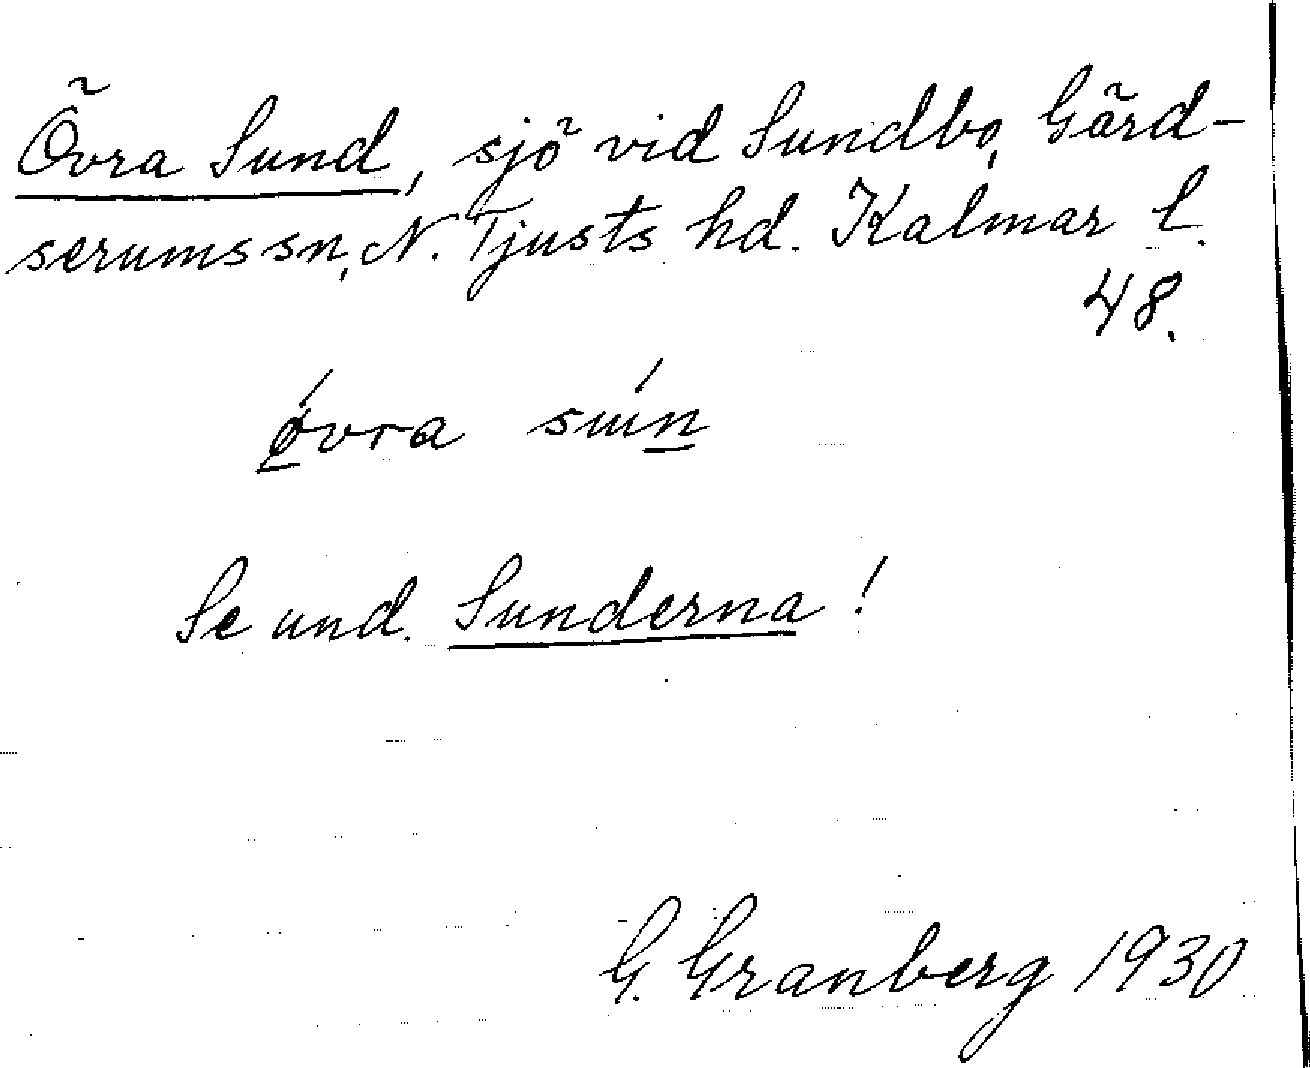 Övra Sund, sjö vid Sundbo, Gärd-
serums sn, N. Tjusts hd. Kalmar l.
48.
ǿvra suń
Se und. Sunderna!
G. Granberg 1930